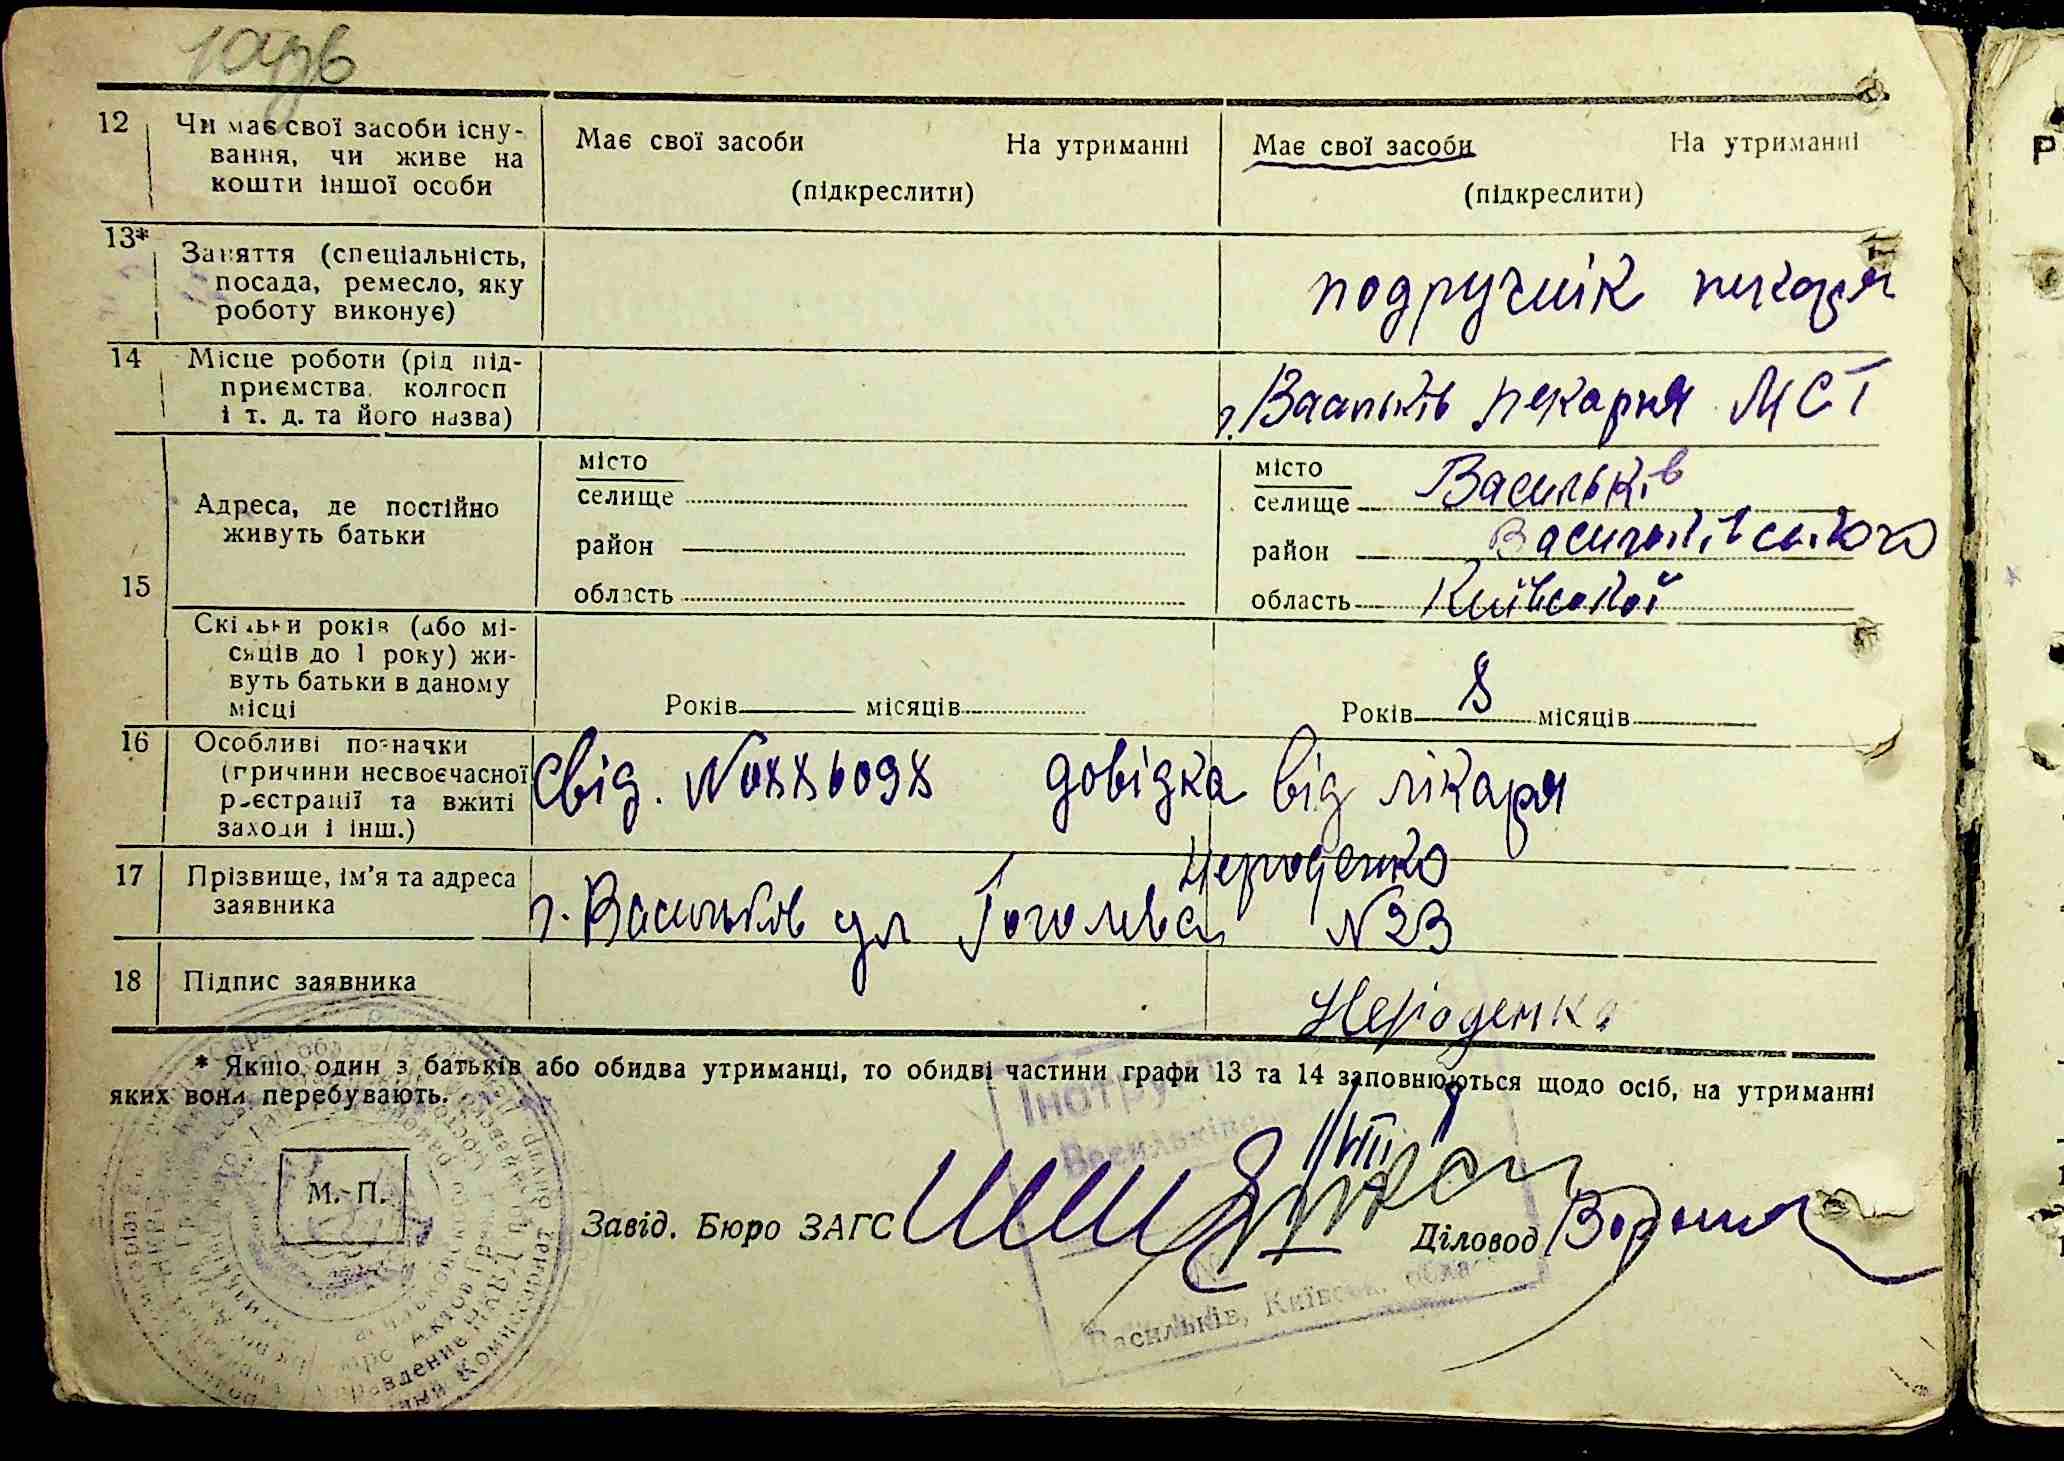 12 Чи має свої засоби існу-
вання, чи живе на
кошти іншої особи
Має свої засоби На утриманні
(підкреслити)
Має свої засоби На утриманні
(підкреслити)
13* Заняття (спеціальність,
посада, ремесло, яку
роботу виконує)
подручнік пекаря
14 Місце роботи (рід під-
приємства, колгосп
і т. д. та його назва)
г. Васильків пекарня МСТ
15
Адреса, де постійно
живуть батьки
місто
селище
район
область
місто
селище Васильків
район Васильківського
область Київської
Скільки років (або мі-
сяців до 1 року) жи-
вуть батьки в даному
місці
Років місяців
Років 8 місяців
16 Особливі позначки
(причини несвоєчасної
реєстрації та вжиті
заходи і інш.)
Свід. довідка від лікаря
17 Прізвище, ім'я та адреса
заявника
Нероденко
г. Васильков ул Гоголева N23
18 Підпис заявника
Нероденко
* Якщо один з батьків або обидва утриманці, то обидві частини графи 13 та 14 заповнюються щодо осіб, на утриманні
яких вони перебувають.
М. П.
Завід. Бюро ЗАГС
Діловод
Васильків, Київськ. област